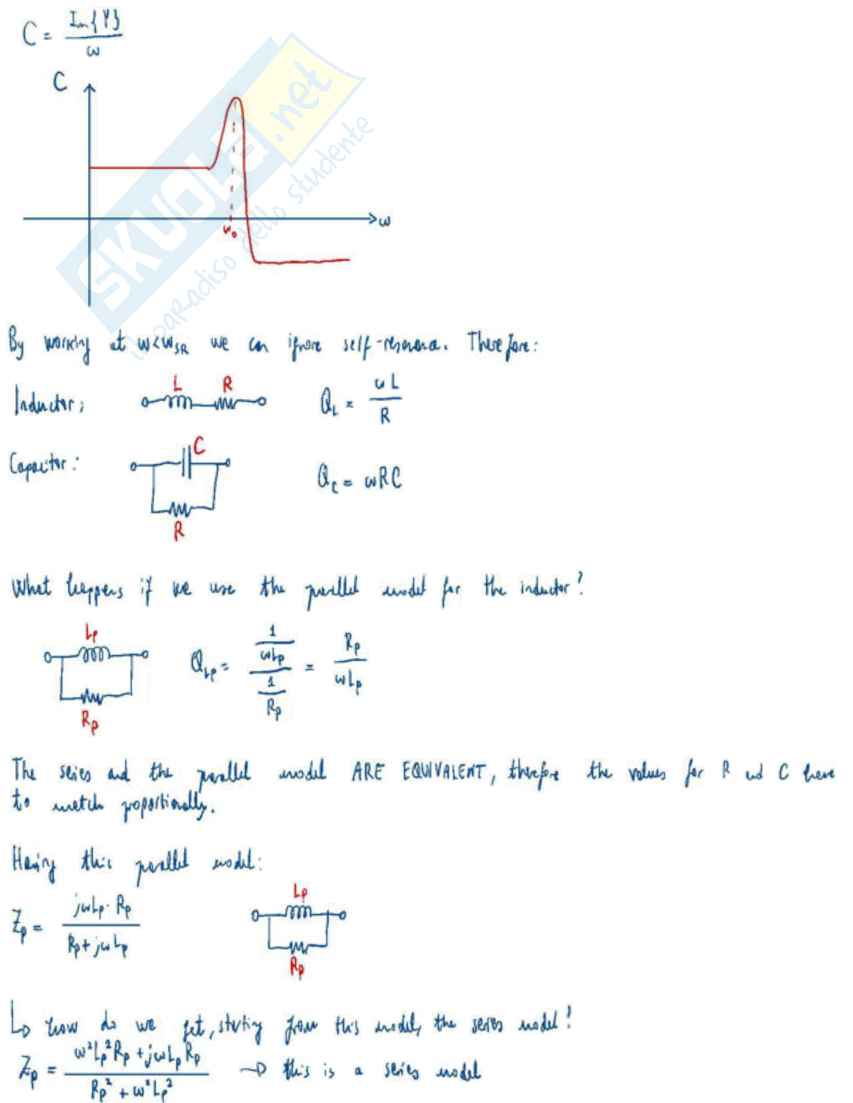 C = Im{Y} / ω
C
ω
ω₀
SKUOLA.net
il paradiso dello studente
By working at ω<ω_SR we can ignore self-resonance. Therefore:
Inductor: L R Q_L = ωL / R
Capacitor: C R Q_C = ωRC
What happens if we use the parallel model for the inductor?
L_p R_p Q_Lp = (1/ωL_p) / (1/R_p) = R_p / ωL_p
The series and the parallel model ARE EQUIVALENT, therefore the values for R and C have
to match proportionally.
Having this parallel model:
Z_p = jωL_p · R_p / R_p + jωL_p L_p R_p
↳ how do we get, starting from this model, the series model?
Z_p = ω²L_p²R_p + jωL_p R_p / R_p² + ω²L_p² → this is a series model